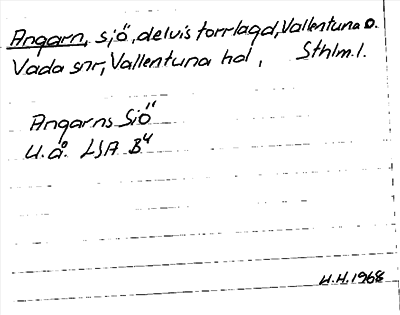 Angarn, sjö, delvis torrlagd, Vallentuna o.
Vada snr, Vallentuna hd, Sthlm.l.
Angarns Siö
U.å. LSA B4
U.H.1968